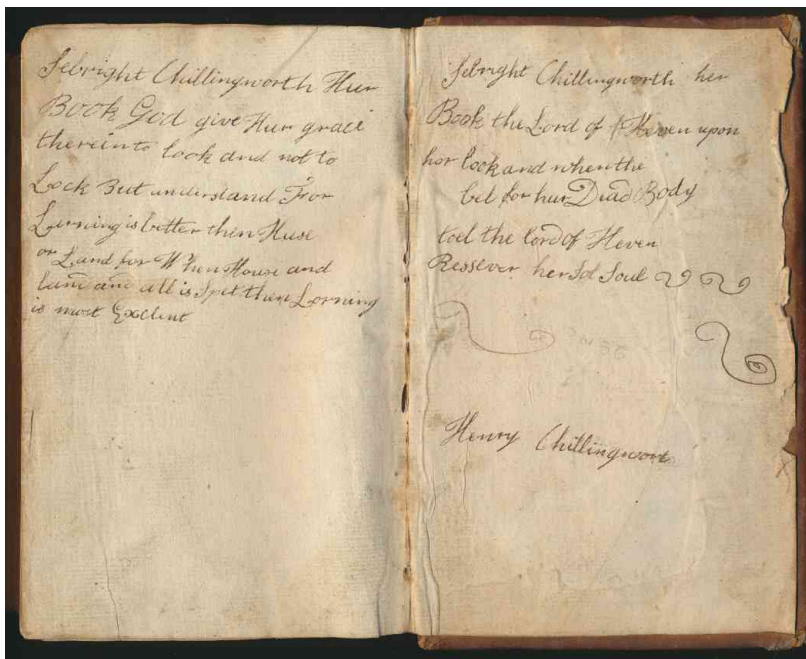 Sebright Chillingworth Hur
Book God give Hur grace
therein to look and not to
Lock But understand For
Larning is better then Huse
or Land for When House and
land and all is Spet then Lorning
is most Exelent
Sebright Chillingworth her
Book the Lord of Heven upon
hor look and when the
bel for hur Dead Body
toel the lord of Heven
Ressever her Soul
Henry Chillingwort